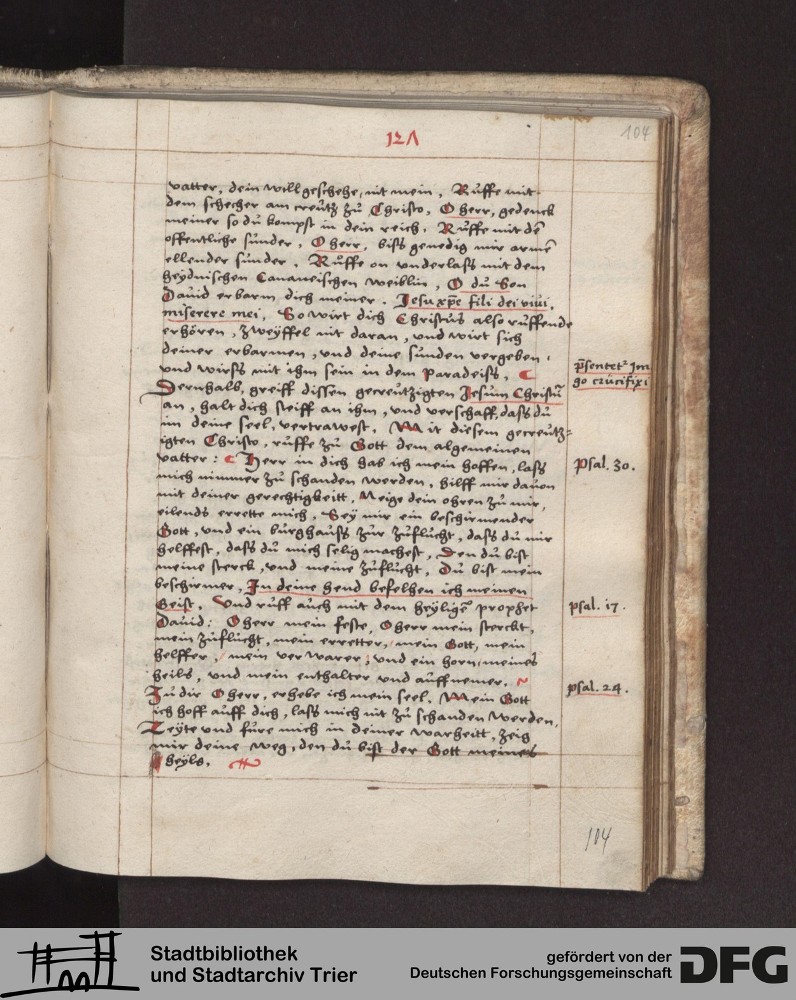 104
vatter, dein will geschehe, nit mein. Rüffe mit
dem schecher am creütz zü Christo, O herr, gedenck
meiner so dü kompst in dein reich. Rüffe mit dē
offentliche sünder, O herr, biss genedig mir armē
ellender sünder. Rüffe on vnderlass mit dem
heydnischen Cananeischen weiblin, O dü Son
Dauid erbarm dich meiner. Jesu xpē fili dei viui,
miserere mei, So wirt dich Christus also rüffende
erhören, zweyffel nit daran, vnd wirt sich
deiner erbarmen, vnd deine sünden vergeben,
vnd wirss mit ihm sein in dem Paradeiss.
Dernhalb, greiff dissen gecreützigten Jesum Christū
an, halt dich steiff an ihm, vnd verschaff, dass dü
im deine seel, vertrawest. Mit diesem gecreütz=
igten Christo, rüffe zü Gott dem algemeinen
vatter: Herr in dich hab ich mein hoffen, lass
mich nimmer zü schanden werden, hilff mir dauon
mit deiner gerechtigkeitt. Neige dein ohren zü mir,
eilends errette mich. Sey mir ein beschirmender
Gott, vnd ein bürghauss zür züflücht, dass dü mir
helffest, dass dü mich selig machest, Den dü bist
meine sterck, vnd meine züflücht. Dü bist mein
beschirmer, In deine hend befelhen ich meinen
Geist. Vnd rüff auch mit dem heyligē prophet
Dauid: O herr mein feste, O herr mein sterckt,
mein züflücht, mein erretter, mein Gott, mein
helffer, mein verwarer, vnd ein horn meines
heils, vnd mein enthalter vnd auffnemer.
In dir O herr, erhebe ich mein seel. Mein Gott
ich hoff auff dich, lass mich nit zü schanden werden,
Leyte vnd füre mich in deiner warheitt, zeig
mir deine weg, den dü bist der Gott meines
heyls.
p̄sentet Im
go crucifixi
psal. 30.
psal. 17.
psal. 24.
104
Stadtbibliothek
und Stadtarchiv Trier
gefördert von der
Deutschen Forschungsgemeinschaft
DFG